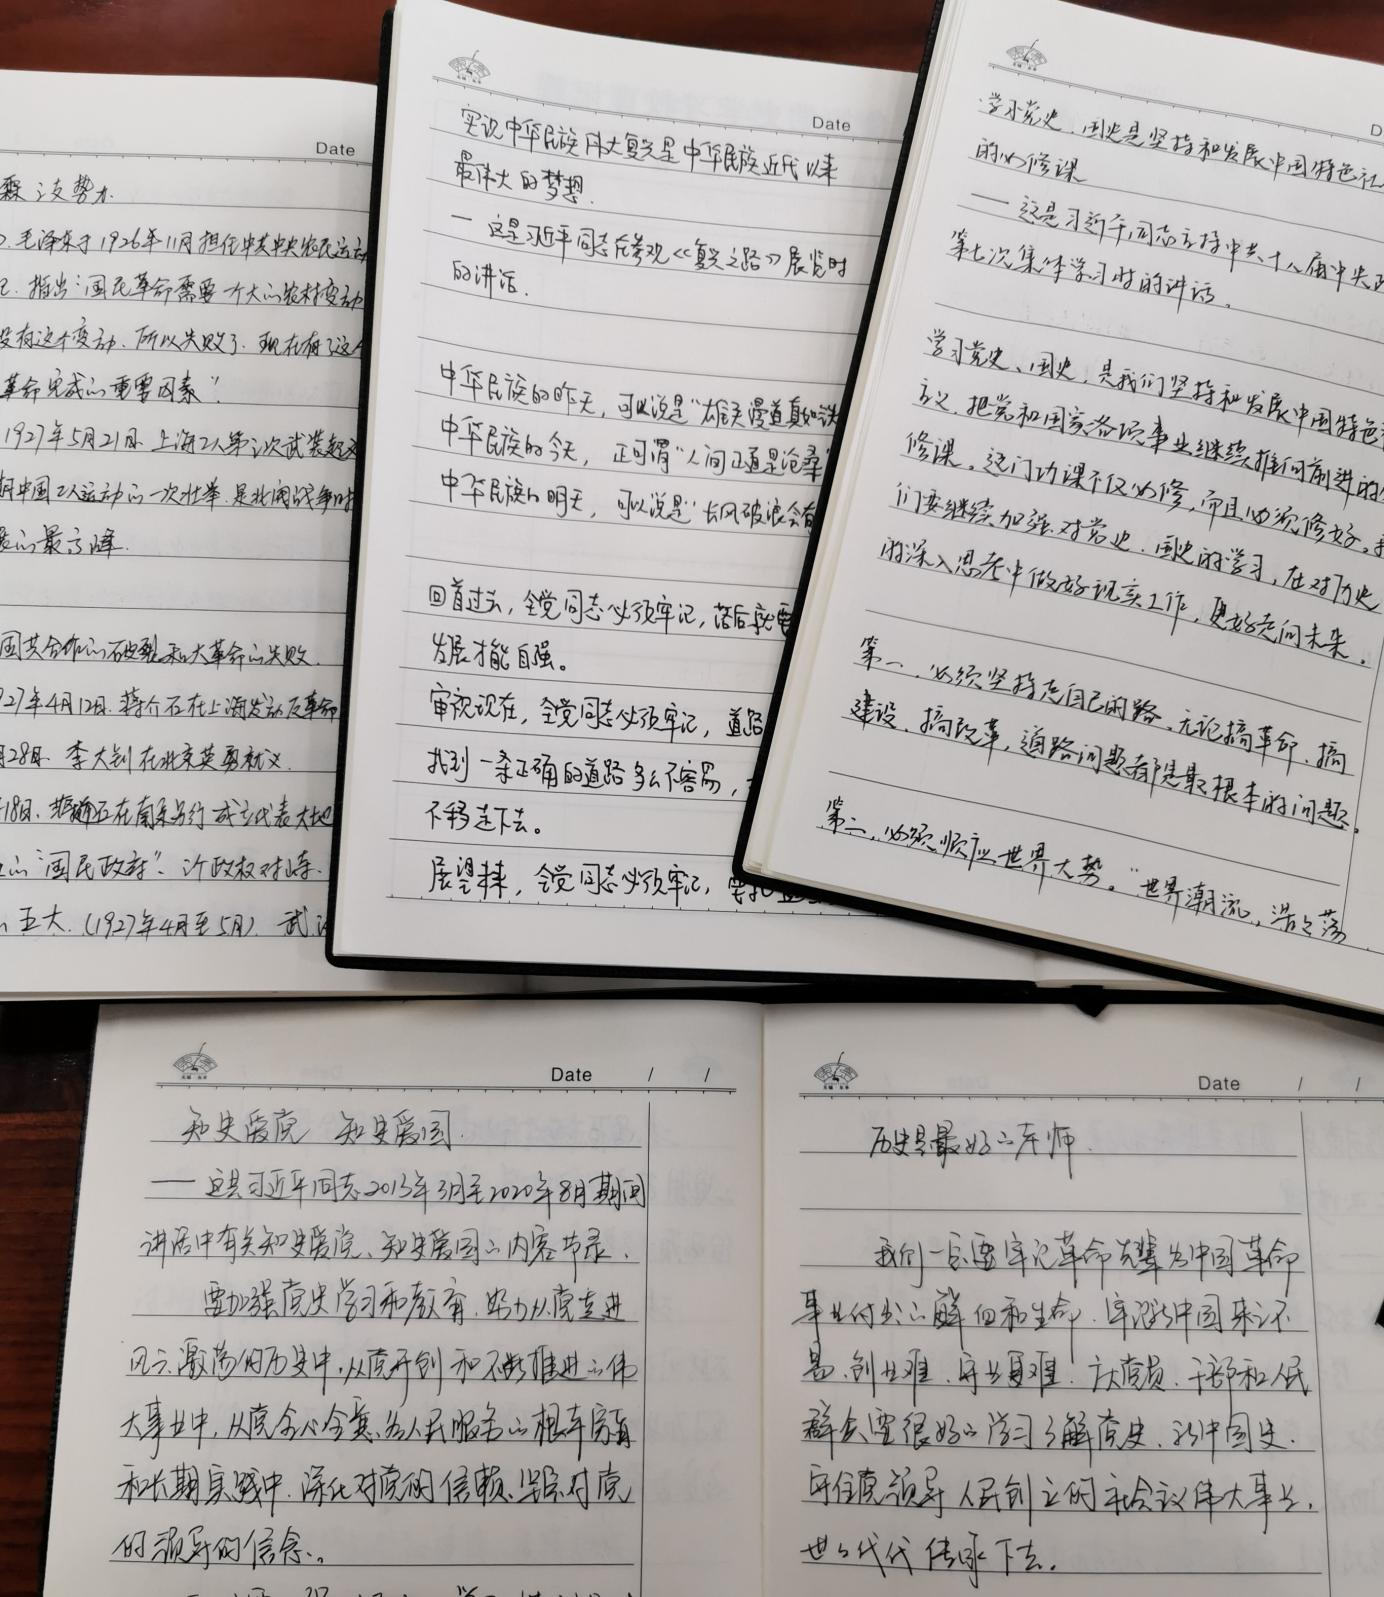 Date
霖
势力
毛泽东于1926年11月担任中共中央农民运动
指出:国民革命需要一个大的农村变动
没有这个变动.所以失败了.现在有了这个
革命完成的重要因素"
1927年5月21日.上海工人第三次武装起义
期中国工人运动的一次壮举.是北伐战争时
的最高峰.
国共合作的破裂和大革命的失败.
27年4月12日.蒋介石在上海发动反革命
月28日.李大钊在北京英勇就义.
18日.蒋介石在南京另行成立代表大地
"国民政府".
五大.(1927年4月至5月).武汉
Date
实现中华民族伟大复兴是中华民族近代以来
最伟大的梦想.
一这是习近平同志在参观《复兴之路》展览时
的讲话.
中华民族的昨天,可以说是"雄关漫道真如铁
中华民族的今天,正可谓"人间正道是沧桑"
中华民族的明天,可以说是"长风破浪会有
回首过去,全党同志必须牢记,落后就要
发展才能自强。
审视现在,全党同志必须牢记,道路
找到一条正确的道路多么不容易,
不移走下去。
展望未来,全党同志必须牢记,要把
D
学习党史、国史是坚持和发展中国特色社
的必修课
——这是习近平同志主持中共十八届中央政
第七次集体学习时的讲话.
学习党史、国史,是我们坚持和发展中国特色
主义、把党和国家各项事业继续推向前进的
修课。这门功课不仅必修,而且必须修好。
们要继续加强对党史、国史的学习,在对历史
的深入思考中做好现实工作,更好走向未来。
第一,必须坚持走自己的路。无论搞革命、搞
建设、搞改革,道路问题都是最根本的问题。
第二,必须顺应世界大势。"世界潮流,浩浩荡
Date / /
知史爱党 知史爱国.
——这是习近平同志2013年3月至2020年8月期间
讲话中有关知史爱党、知史爱国的内容节录.
要加强党史学习和教育.努力从党走进
风云激荡的历史中,从党开创和不断推进的伟
大事业中,从党全心全意为人民服务的根本宗旨
和长期实践中.深化对党的信赖、坚定对党
的领导的信念。
Date / /
历史是最好的老师.
我们一定要牢记革命先辈为中国革命
事业付出的鲜血和生命.牢记新中国来之不
易.创业难.守业更难.广大党员、干部和人民
群众要很好的学习了解党史、新中国史.
守住党领导人民创立的社会主义伟大事业.
世世代代传承下去。